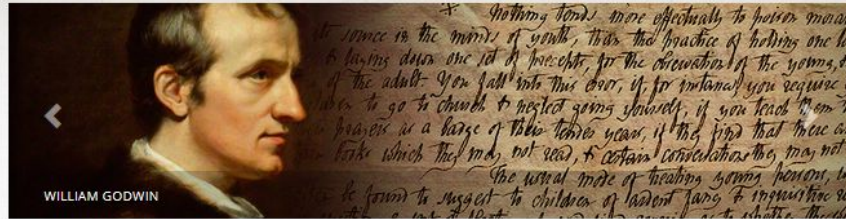 * Nothing tends more effectually to poison moral
its source in the minds of youth, than the practice of holding one
& laying down one set of precepts, for the observation of the young,
of the adult. You fall into this error, if, for instance, you require
to go to church & neglect going yourself, if you teach them
prayers as a badge of their tender years, if they find that there are
books which they may not read, & certain conversations they may not
The usual mode of treating young persons,
be found to suggest to children of ardent fancy & inquisitive
WILLIAM GODWIN